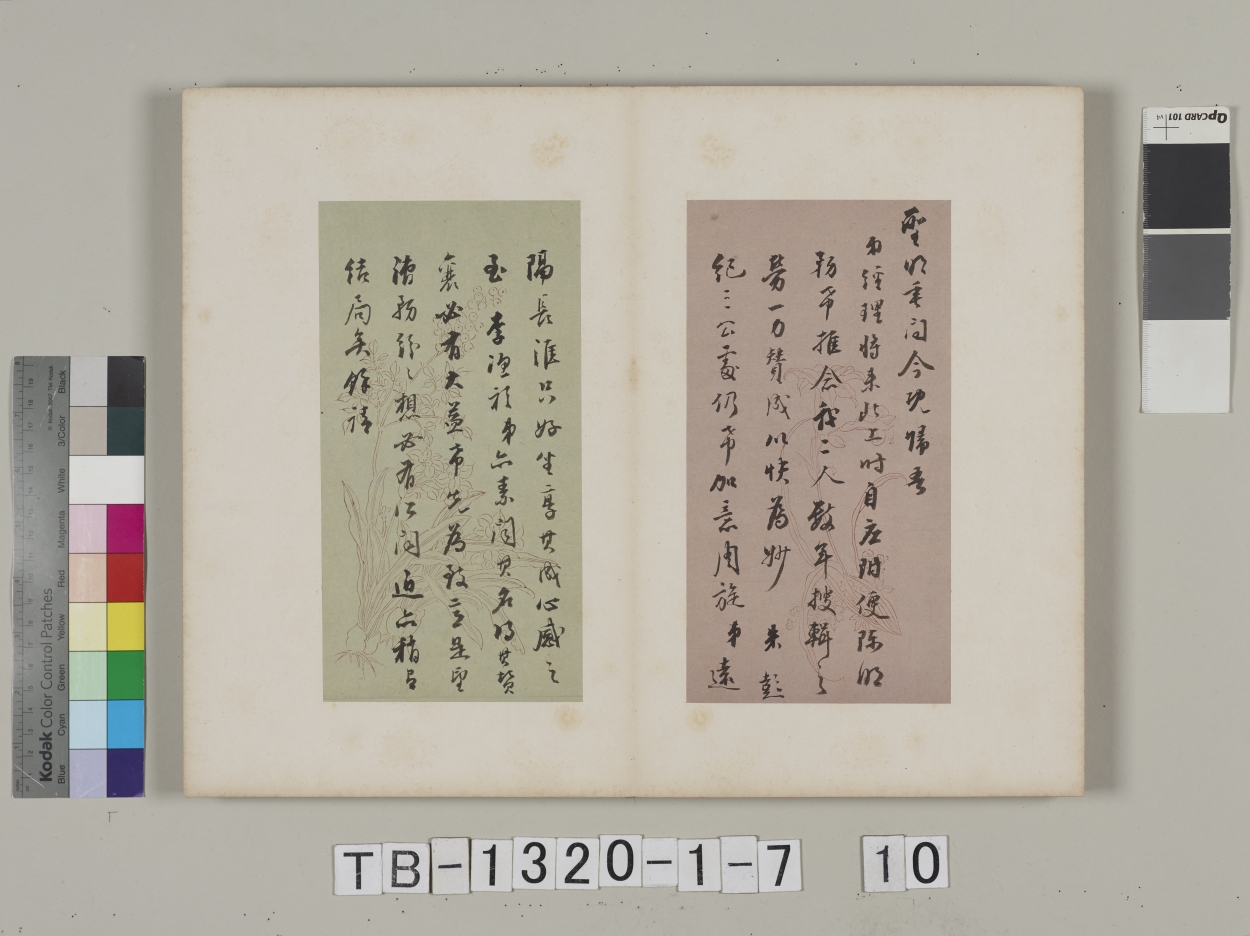 聖明垂問今既歸吾
弟經理將來此上時自应附便陈明
務希推念我二人数年搜輯之
勞一力贊成以快為妙 朱彭
紀三公處仍希加意周旋弟遠
隔長淮只好坐享其成心感之
至 李渔衫弟亦素闻其名得其贊
襄必有大益希先為致意是望
漕務紛紛想必有所闻近亦稍可
結局矣餘禧
Kodak Color Control Patches
Blue
Cyan
Green
Yellow
Red
Magenta
White
3/Color
Black
QPCARD 101
TB-1320-1-7 10